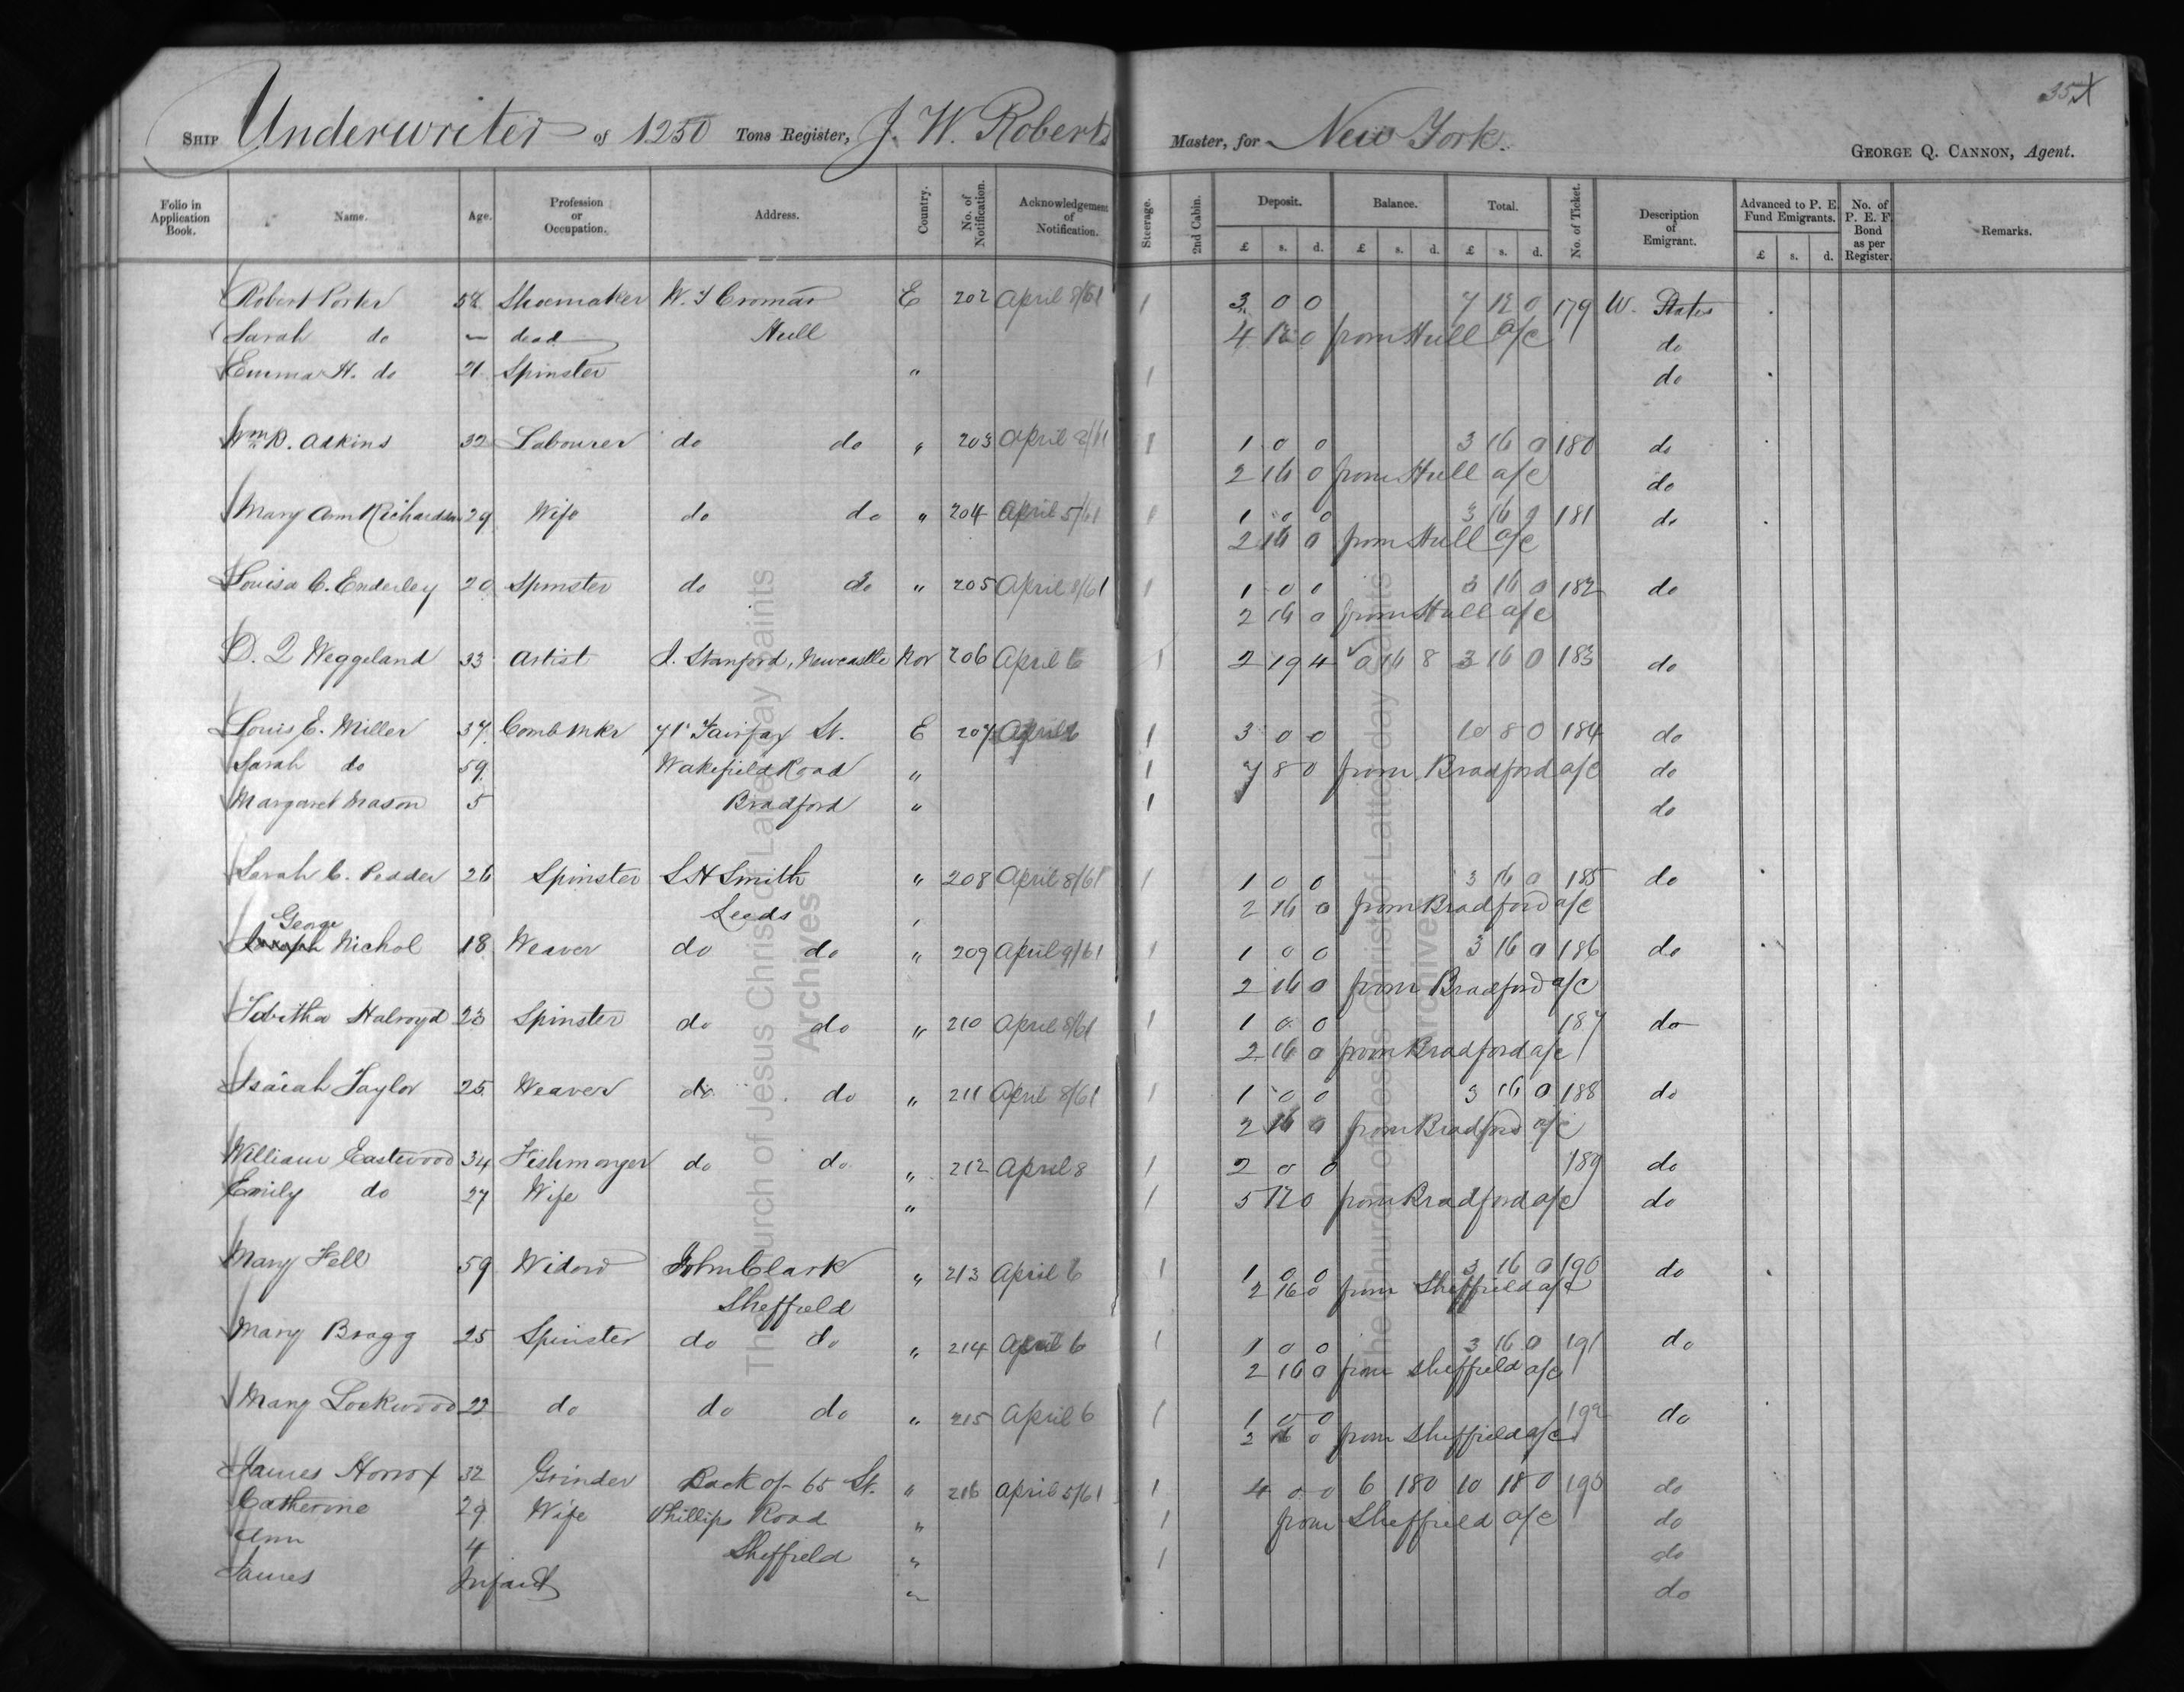 35
SHIP Underwriter of 1250 Tons Register, J. W. Roberts Master, for New York. GEORGE Q. CANNON, Agent.
Folio in Application Book. Name. Age. Profession or Occupation. Address. Country. No. of Notification. Acknowledgement of Notification. Steerage. 2nd Cabin. Deposit. Balance. Total. No. of Ticket. Description of Emigrant. Advanced to P. E. Fund Emigrants. No. of P. E. F. Bond as per Register. Remarks.
£ s. d. £ s. d. £ s. d. £ s. d.
Robert Porter 58 Shoemaker W. T Cromar E 202 April 8/61 1 3 0 0 7 12 0 179 W. States
Sarah do — dead Hull 4 12 0 from Hull a/c do
Emma H. do 21 Spinster " 1 do
Wm D. Adkins 32 Labourer do do " 203 April 8/61 1 1 0 0 3 16 0 180 do
2 16 0 from Hull a/c do
Mary Ann Richardson 29 Wife do do " 204 April 5/61 1 1 0 0 3 16 0 181 do
2 16 0 from Hull a/c
Louisa C. Enderley 20 Spinster do do " 205 April 8/61 1 1 0 0 3 16 0 182 do
2 16 0 from Hull a/c
D. Q Weggeland 33 Artist J. Stanford, Newcastle Nor 206 April 6 1 2 19 4 0 16 8 3 16 0 183 do
Louis E. Miller 37 Comb mkr 71 Fairfax St. E 207 April 6 1 3 0 0 10 8 0 184 do
Sarah do 59 Wakefield Road " 1 7 8 0 from Bradford a/c do
Margaret Mason 5 Bradford " 1 do
Sarah C. Pedder 26 Spinster S H Smith " 208 April 8/61 1 1 0 0 3 16 0 185 do
Leeds 2 16 0 from Bradford a/c
George
Joseph Nichol 18 Weaver do do " 209 April 9/61 1 1 0 0 3 16 0 186 do
2 16 0 from Bradford a/c
Tabitha Halroyd 23 Spinster do do " 210 April 8/61 1 1 0 0 187 do
2 16 0 from Bradford a/c
Isaiah Taylor 25 Weaver do do " 211 April 8/61 1 1 0 0 3 16 0 188 do
2 16 0 from Bradford a/c
William Eastwood 34 Fishmonger do do " 212 April 8 1 2 0 0 189 do
Emily do 27 Wife " 1 5 12 0 from Bradford a/c do
Mary Fell 59 Widow John Clark " 213 April 6 1 1 0 0 3 16 0 190 do
Sheffield 2 16 0 from Sheffield a/c
Mary Bragg 25 Spinster do do " 214 April 6 1 1 0 0 3 16 0 191 do
2 16 0 from Sheffield a/c
Mary Lockwood 22 do do do " 215 April 6 1 1 0 0 192 do
2 16 0 from Sheffield a/c
James Horrox 32 Grinder Back of 65 St. " 216 April 5/61 1 4 0 0 6 18 0 10 18 0 193 do
Catherine 29 Wife Phillips Road " 1 from Sheffield a/c do
Ann 4 Sheffield " 1 do
James Infant " do
The Church of Jesus Christ of Latter-day Saints
Archives
The Church of Jesus Christ of Latter-day Saints
Archives